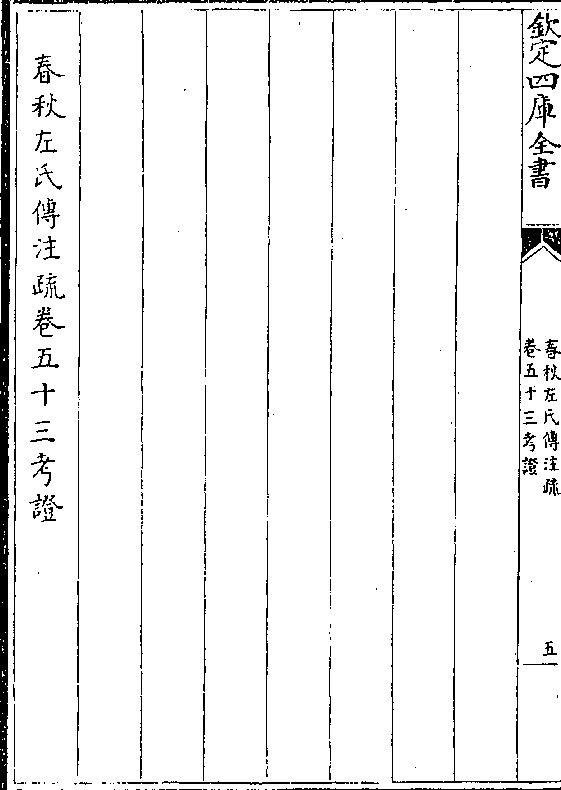 欽定四庫全書
春秋左氏傳注疏
卷五十三考證
五
春秋左氏傳注疏卷五十三考證